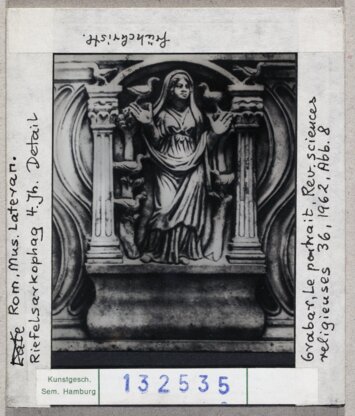 frühchristl.
Late Rom. Mus. Lateran.
Riefelsarkophag 4. Jh. Detail
Grabar, Le portrait, Rev. sciences
religieuses 36, 1962, Abb. 8
Kunstgesch.
Sem. Hamburg
132535